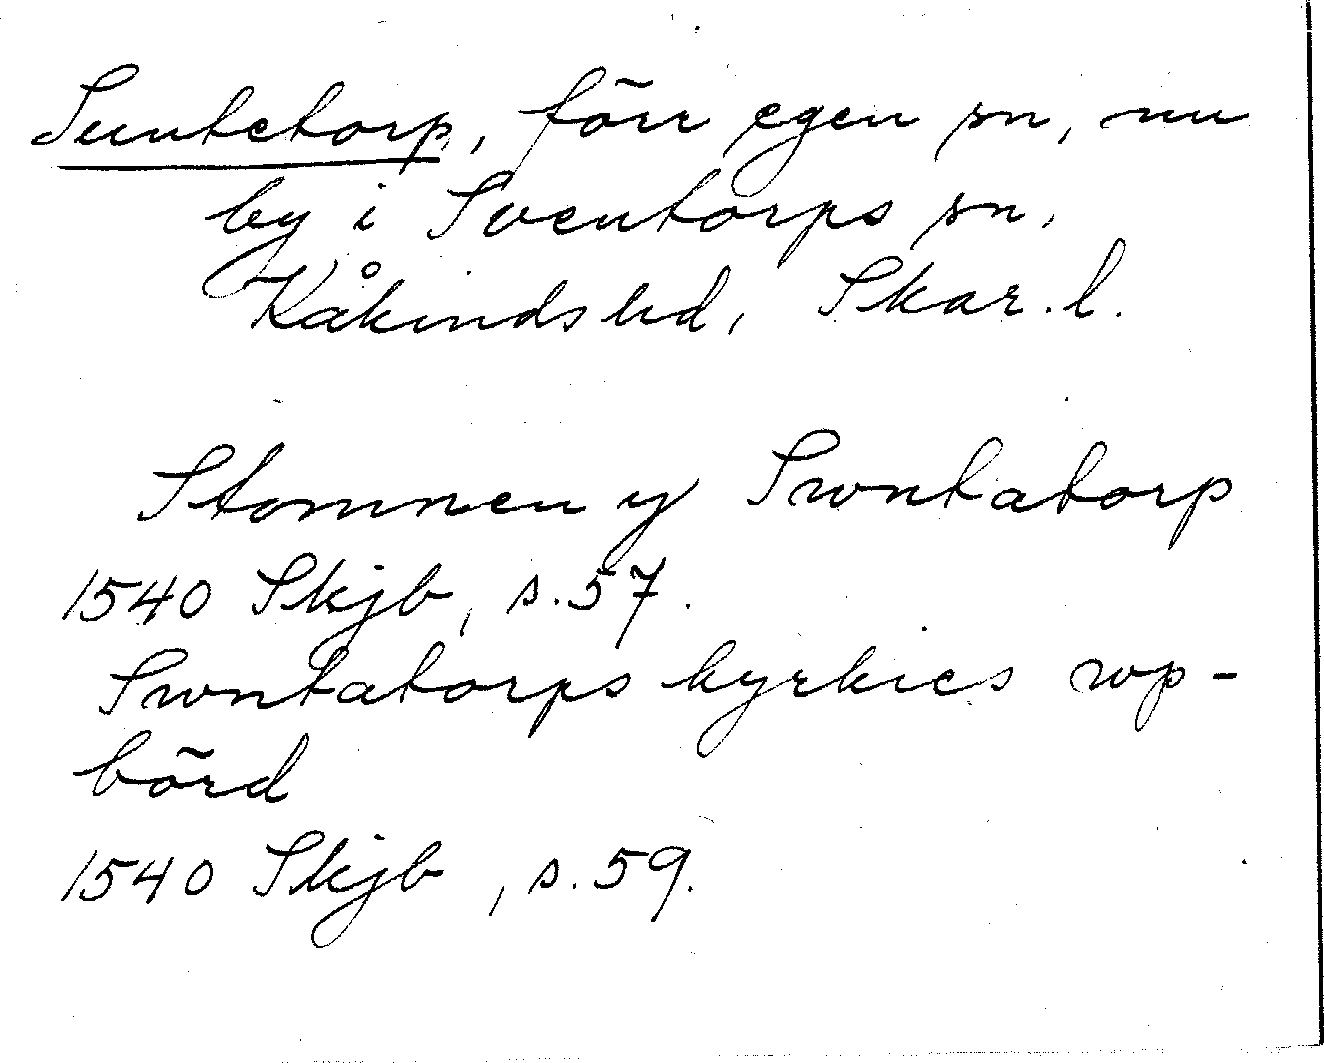 Suntetorp, förr egen sn, nu
by i Sventorps sn,
Kåkinds hd, Skar. l.
Stommen y Swntatorp
1540 Skjb, s. 57.
Swntatorps kyrkies wp-
börd
1540 Skjb, s. 59.